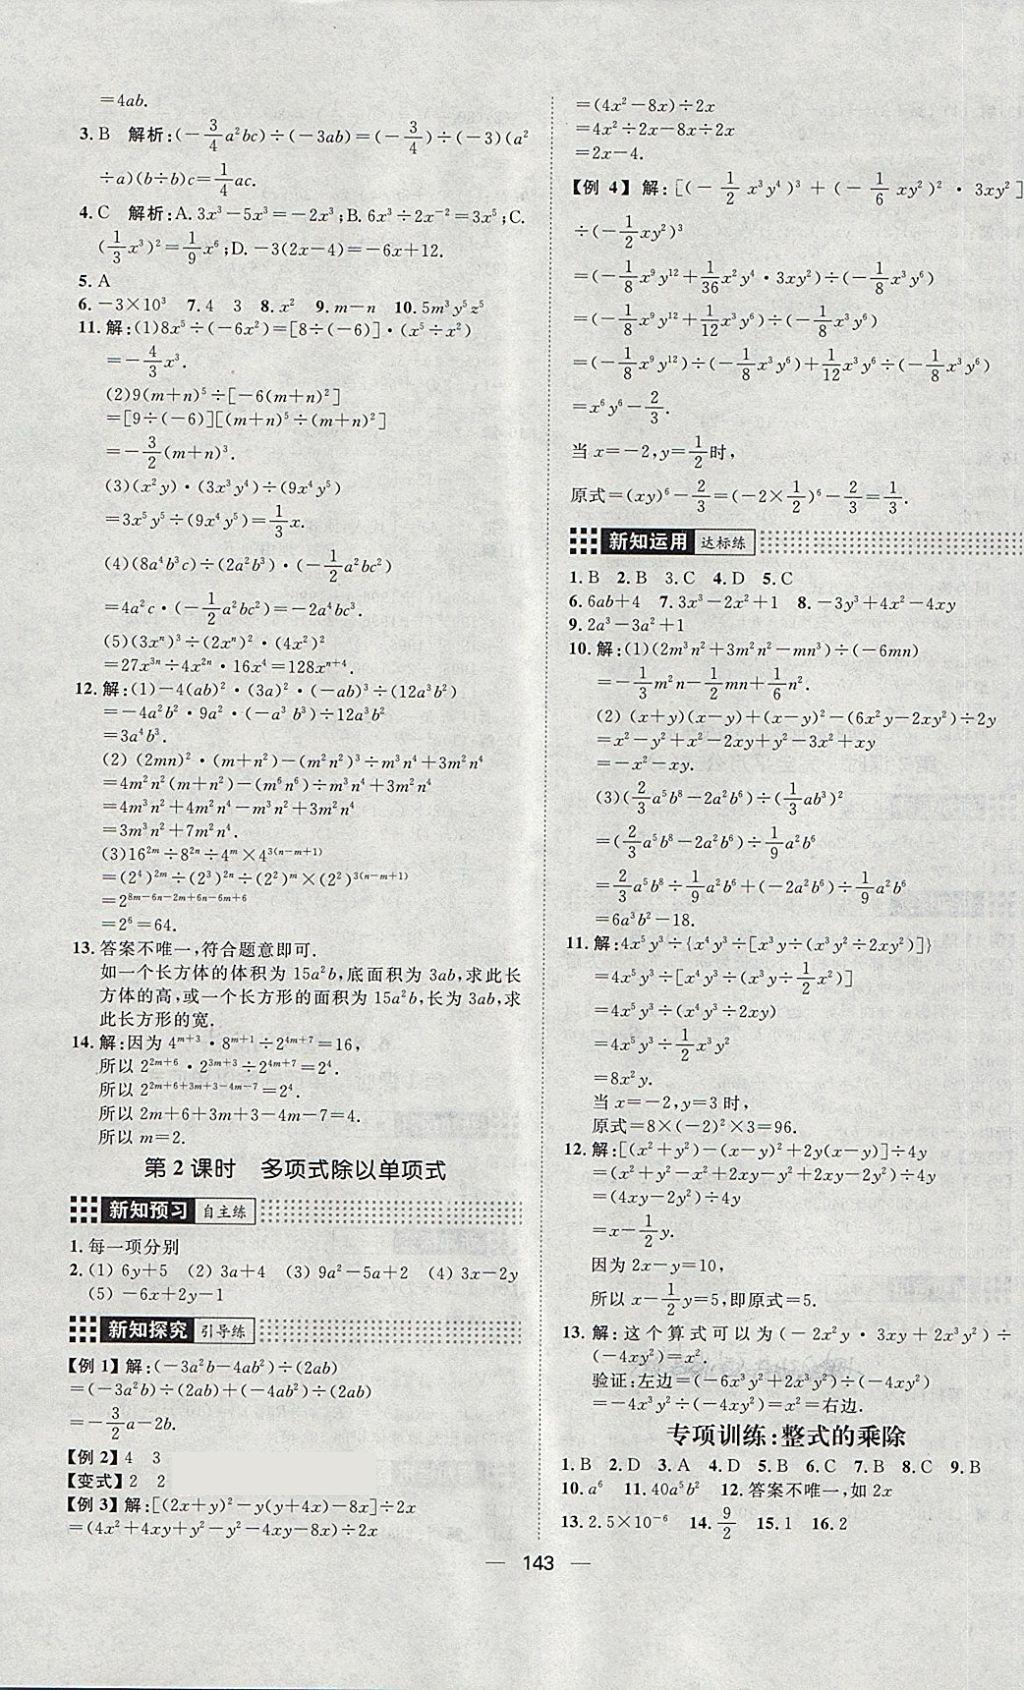 =4ab.
3. B 解析:(-3/4a²bc)÷(-3ab)=(-3/4)÷(-3)(a²
÷a)(b÷b)c=1/4ac.
4. C 解析:A. 3x³-5x³=-2x³;B. 6x³÷2x⁻²=3x⁵;C.
(1/3x³)²=1/9x⁶;D. -3(2x-4)=-6x+12.
5. A
6. -3×10³ 7. 4 3 8. x² 9. m-n 10. 5m³y⁵z⁵
11. 解:(1)8x⁵÷(-6x²)=[8÷(-6)]·(x⁵÷x²)
=-4/3x³.
(2)9(m+n)⁵÷[-6(m+n)²]
=[9÷(-6)][(m+n)⁵÷(m+n)²]
=-3/2(m+n)³.
(3)(x²y)·(3x³y⁴)÷(9x⁴y⁵)
=3x⁵y⁵÷(9x⁴y⁵)=1/3x.
(4)(8a⁴b³c)÷(2a²b³)·(-1/2a²bc²)
=4a²c·(-1/2a²bc²)=-2a⁴bc³.
(5)(3xⁿ)³÷(2xⁿ)²·(4x²)²
=27x³ⁿ÷4x²ⁿ·16x⁴=128xⁿ⁺⁴.
12. 解:(1)-4(ab)²·(3a)²·(-ab)³÷(12a³b²)
=-4a²b²·9a²·(-a³b³)÷12a³b²
=3a⁴b³.
(2) (2mn)²·(m+n²)-(m²n²)³÷m³n⁴+3m²n⁴
=4m²n²(m+n²)-(m⁶n⁶)÷m³n⁴+3m²n⁴
=4m³n²+4m²n⁴-m³n²+3m²n⁴
=3m³n²+7m²n⁴.
(3)16²ᵐ÷8²ⁿ÷4ᵐ×4³⁽ⁿ⁻ᵐ⁺¹⁾
=(2⁴)²ᵐ÷(2³)²ⁿ÷(2²)ᵐ×(2²)³⁽ⁿ⁻ᵐ⁺¹⁾
=2⁸ᵐ⁻⁶ⁿ⁻²ᵐ⁺⁶ⁿ⁻⁶ᵐ⁺⁶
=2⁶=64.
13. 答案不唯一,符合题意即可.
如一个长方体的体积为15a²b,底面积为3ab,求此长
方体的高,或一个长方形的面积为15a²b,长为3ab,求
此长方形的宽.
14. 解:因为4ᵐ⁺³·8ᵐ⁺¹÷2⁴ᵐ⁺⁷=16,
所以2²ᵐ⁺⁶·2³ᵐ⁺³÷2⁴ᵐ⁺⁷=2⁴.
所以2²ᵐ⁺⁶⁺³ᵐ⁺³⁻⁴ᵐ⁻⁷=2⁴.
所以2m+6+3m+3-4m-7=4.
所以m=2.
第2课时 多项式除以单项式
新知预习 自主练
1. 每一项分别
2. (1) 6y+5 (2) 3a+4 (3) 9a²-5a+2 (4) 3x-2y
(5) -6x+2y-1
新知探究 引导练
【例1】解:(-3a²b-4ab²)÷(2ab)
=(-3a²b)÷(2ab)+(-4ab²)÷(2ab)
=-3/2a-2b.
【例2】4 3
【变式】2 2
【例3】解:[(2x+y)²-y(y+4x)-8x]÷2x
=(4x²+4xy+y²-y²-4xy-8x)÷2x
=(4x²-8x)÷2x
=4x²÷2x-8x÷2x
=2x-4.
【例4】解:[(-1/2x³y⁴)³+(-1/6xy²)²·3xy²]
÷(-1/2xy²)³
=(-1/8x⁹y¹²+1/36x²y⁴·3xy²)÷(-1/8x³y⁶)
=(-1/8x⁹y¹²+1/12x³y⁶)÷(-1/8x³y⁶)
=(-1/8x⁹y¹²)÷(-1/8x³y⁶)+1/12x³y⁶÷(-1/8x³y⁶)
=x⁶y⁶-2/3.
当x=-2,y=1/2时,
原式=(xy)⁶-2/3=(-2×1/2)⁶-2/3=1/3.
新知运用 达标练
1. B 2. B 3. C 4. D 5. C
6. 6ab+4 7. 3x³-2x²+1 8. -3y³+4x²-4xy
9. 2a³-3a²+1
10. 解:(1)(2m³n²+3m²n²-mn³)÷(-6mn)
=-1/3m²n-1/2mn+1/6n².
(2) (x+y)(x-y)+(x-y)²-(6x²y-2xy²)÷2y
=x²-y²+x²-2xy+y²-3x²+xy
=-x²-xy.
(3)(2/3a⁵b⁸-2a²b⁶)÷(1/3ab³)²
=(2/3a⁵b⁸-2a²b⁶)÷1/9a²b⁶
=2/3a⁵b⁸÷1/9a²b⁶+(-2a²b⁶)÷1/9a²b⁶
=6a³b²-18.
11. 解:4x⁵y³÷{x⁴y³÷[x³y÷(x³y²÷2xy²)]}
=4x⁵y³÷[x⁴y³÷(x³y÷1/2x²)]
=4x⁵y³÷(x⁴y³÷2xy)
=4x⁵y³÷1/2x³y²
=8x²y.
当x=-2,y=3时,
原式=8×(-2)²×3=96.
12. 解:[(x²+y²)-(x-y)²+2y(x-y)]÷4y
=(x²+y²-x²+2xy-y²+2xy-2y²)÷4y
=(4xy-2y²)÷4y
=x-1/2y.
因为2x-y=10,
所以x-1/2y=5,即原式=5.
13. 解:这个算式可以为(-2x²y·3xy+2x³y²)÷
(-4xy²)=x².
验证:左边=(-6x³y²+2x³y²)÷(-4xy²)
=-4x³y²÷(-4xy²)=x²=右边.
专项训练:整式的乘除
1. B 2. D 3. A 4. D 5. B 6. C 7. B 8. C 9. B
10. a⁶ 11. 40a⁵b² 12. 答案不唯一,如2x
13. 2.5×10⁻⁶ 14. 9/2 15. 1 16. 2
— 143 —